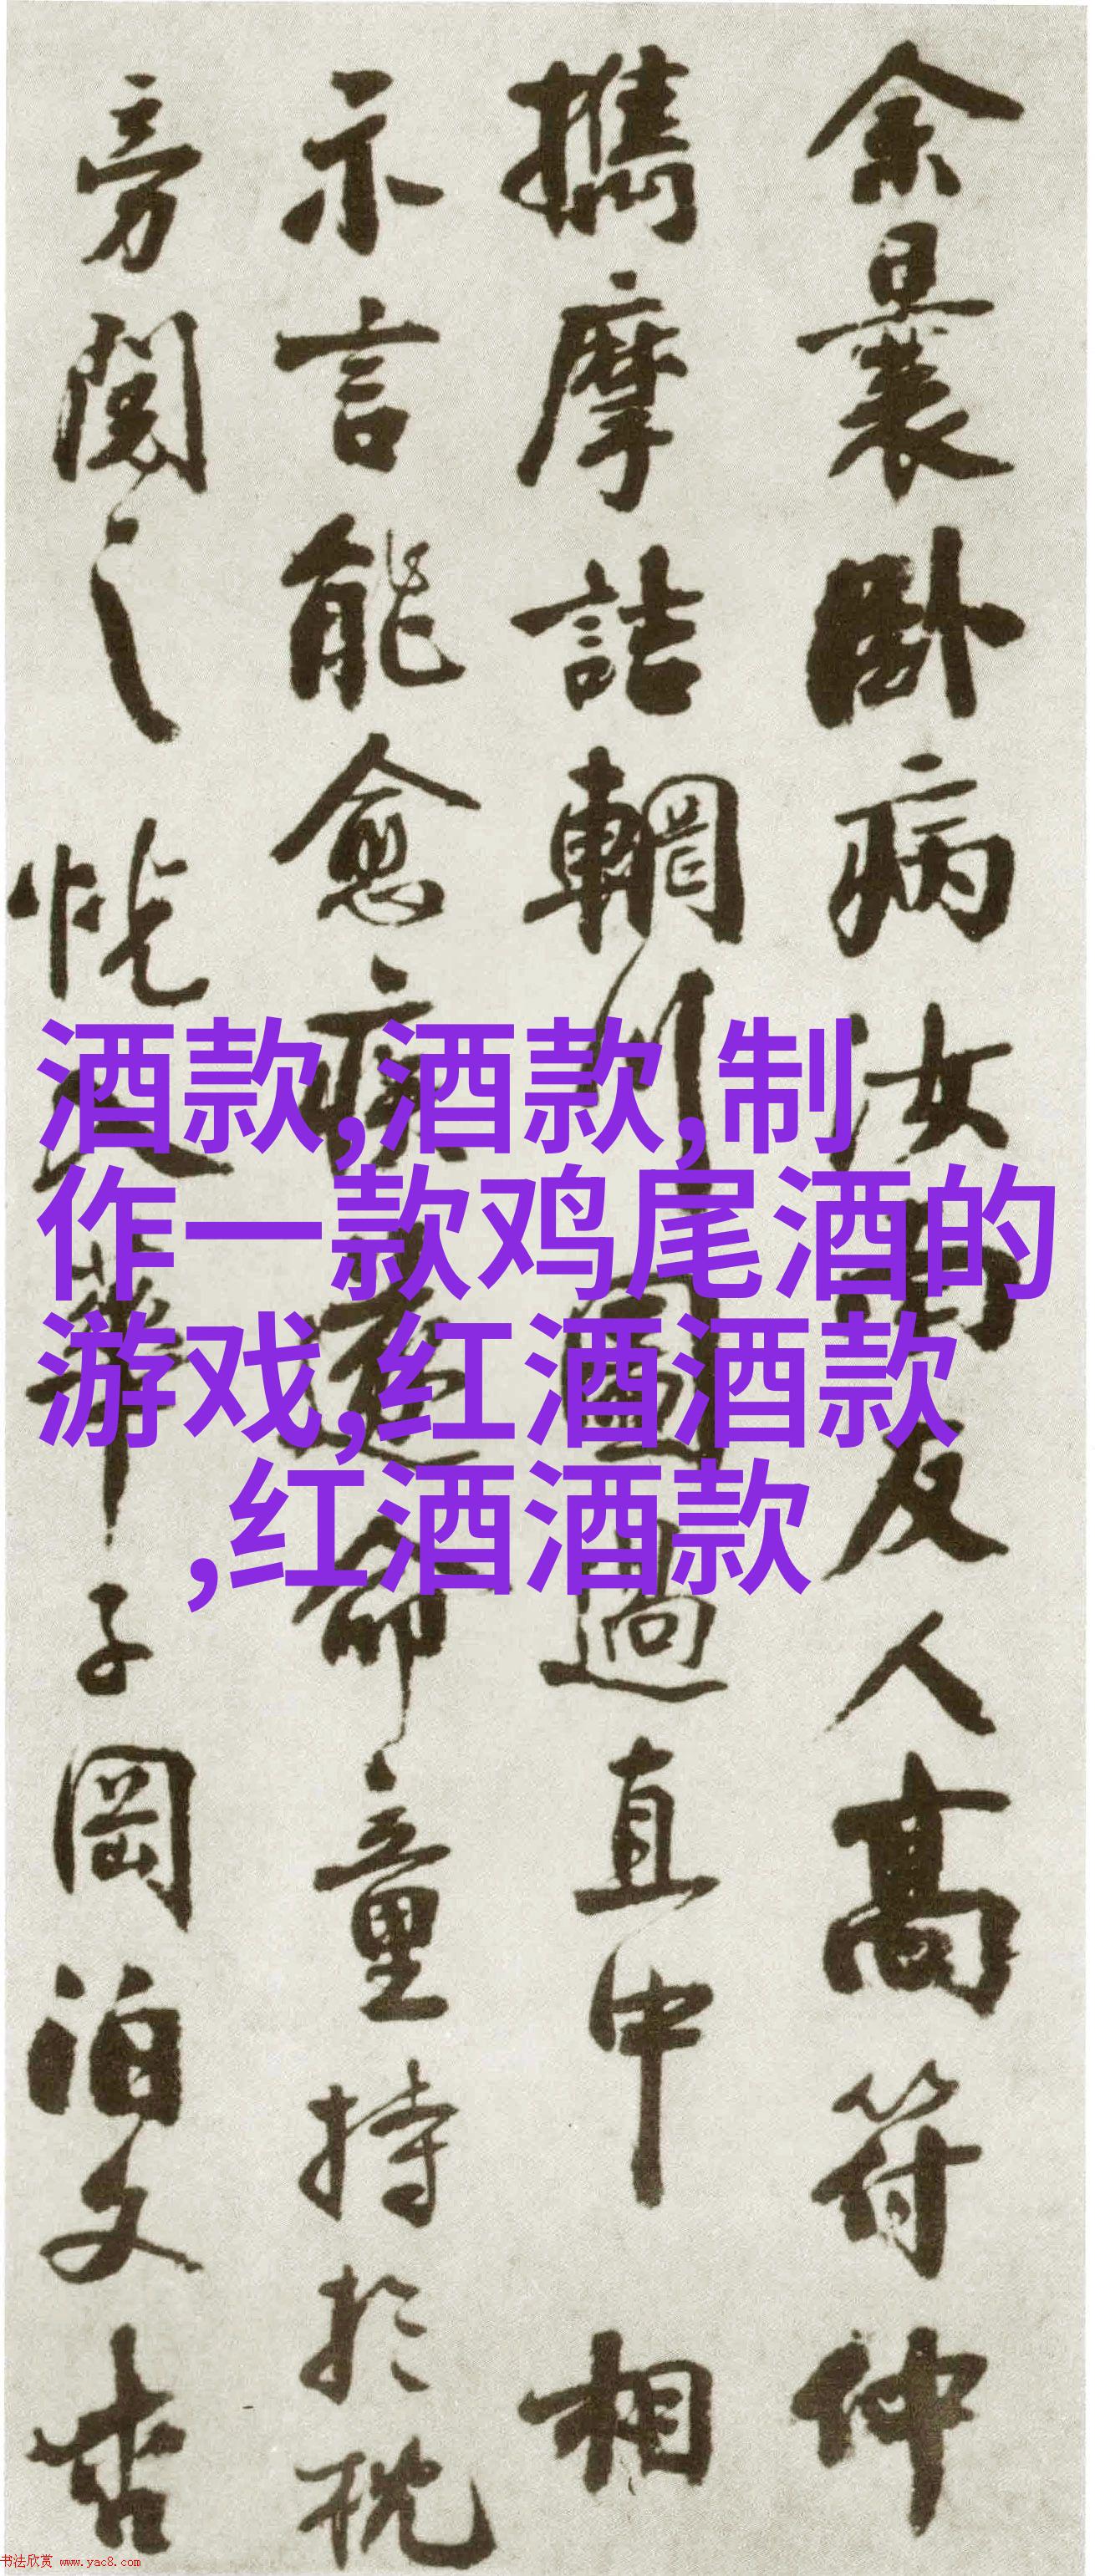 余曩卧病汝南友人高符仲
攜摩詰輞川圖過直中相
示言能愈病遂命童持於枕
旁閱之恍入華子岡泊文杏
酒款,酒款,制
作一款鸡尾酒的
游戏,红酒酒款
,红酒酒款
书法欣赏 www.yac8.com